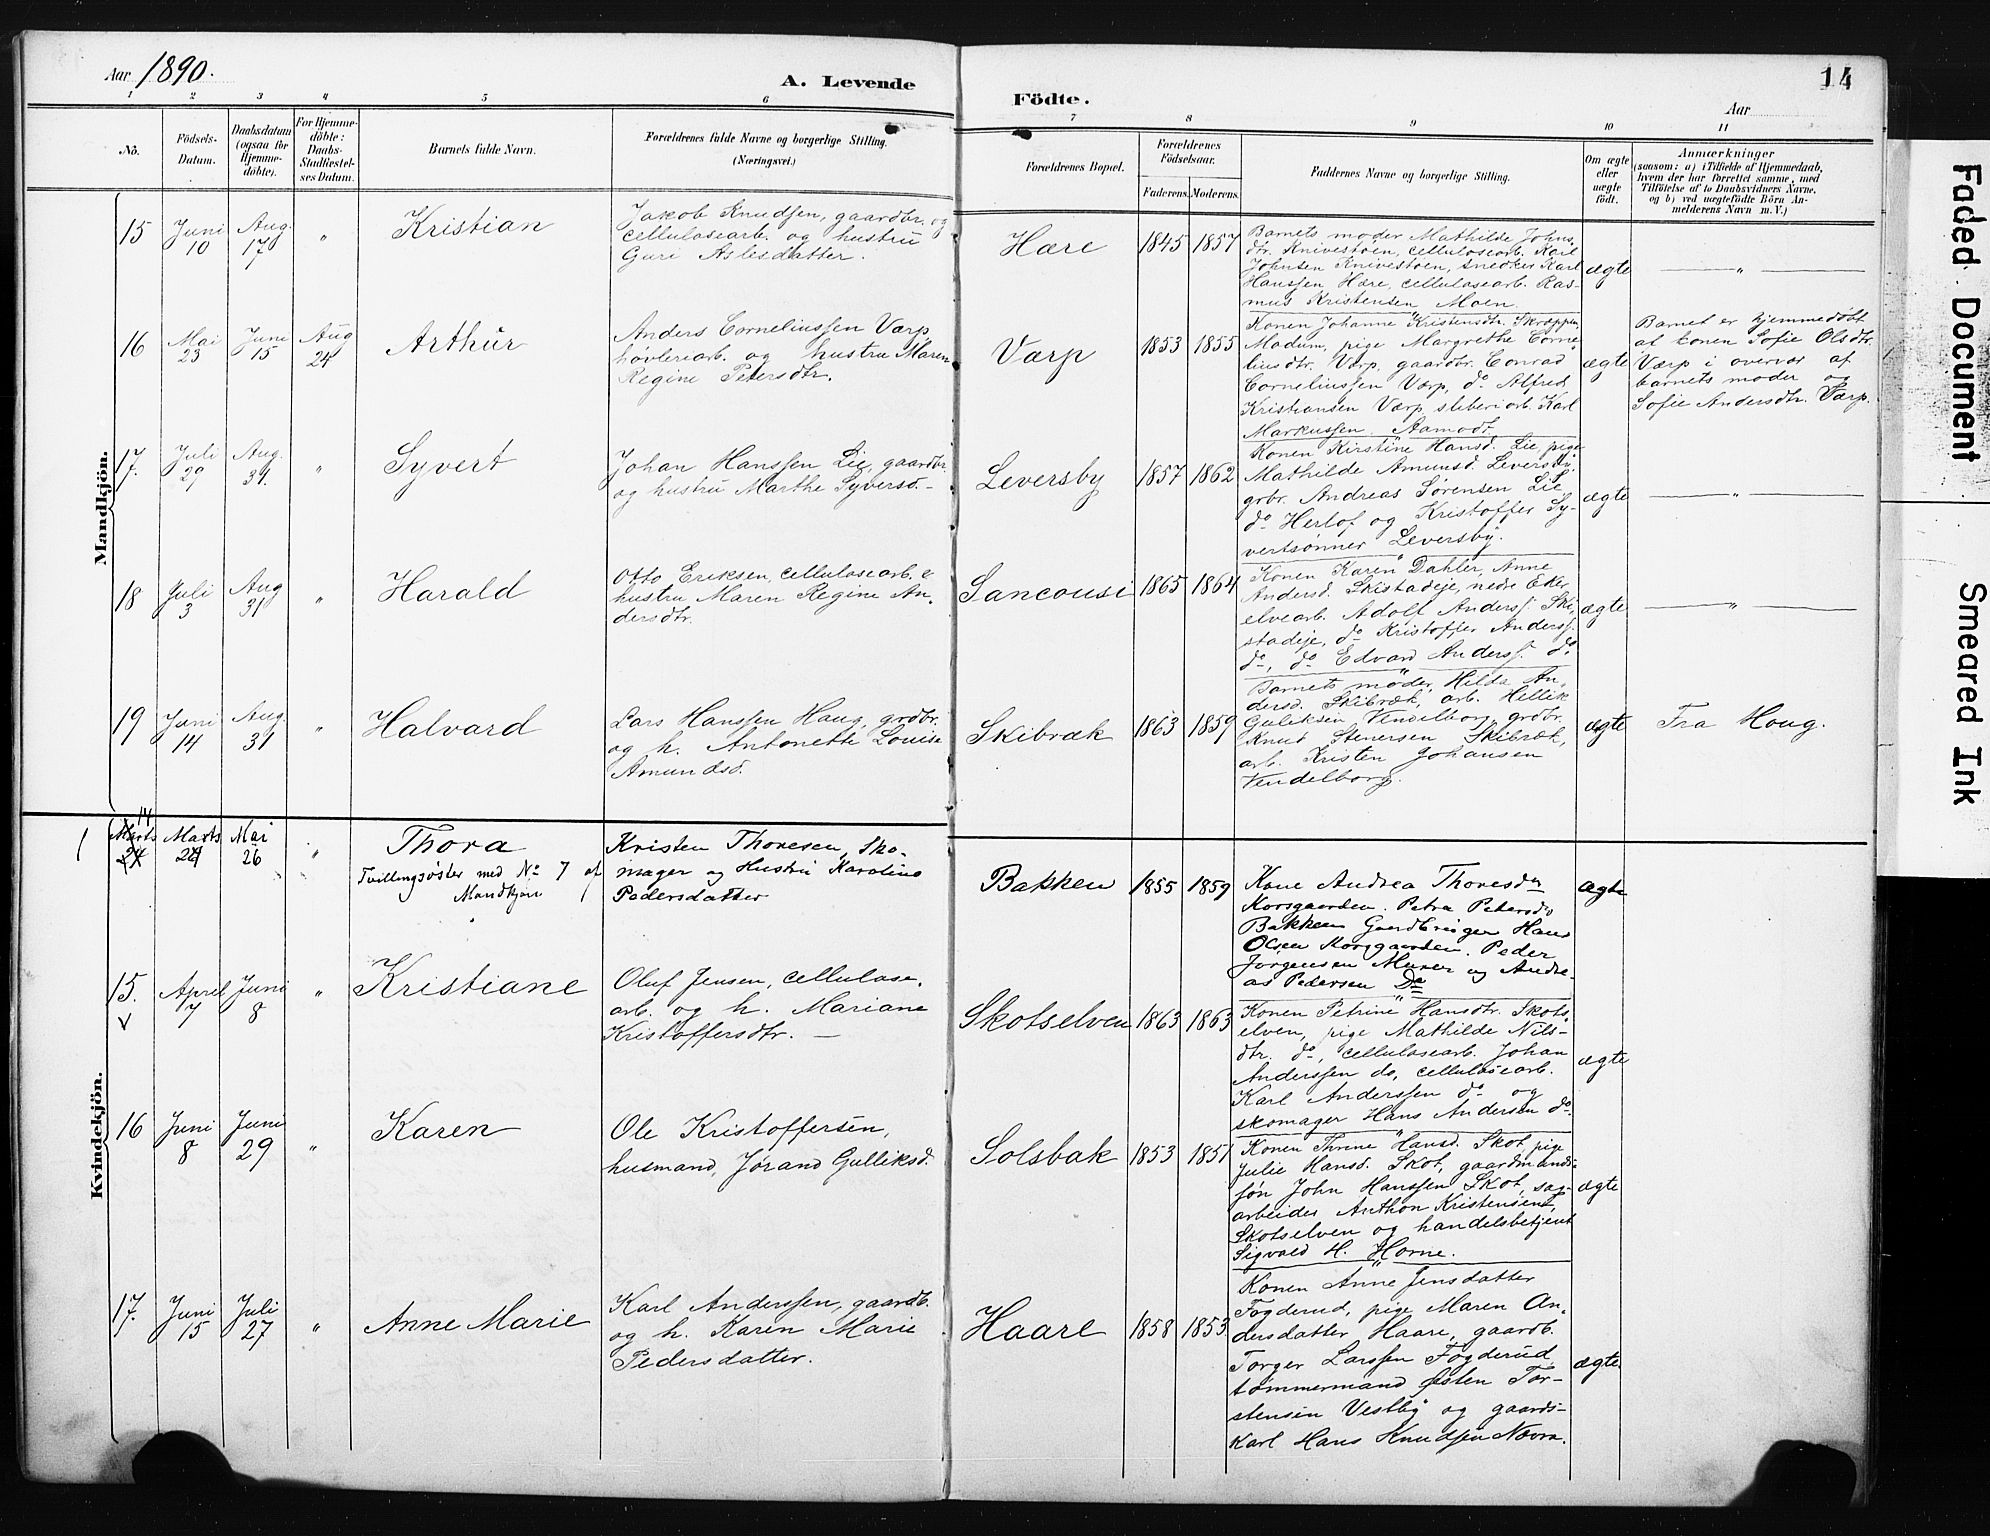 Aar 1890.
A. Levende
Födte.
Aar
14
1 2 3 4 5 6 7 8 9 10 11
No.
Födsels-
Datum.
Daabsdatum
(ogsaa for
Hjemme-
døbte).
For Hjemme-
döbte:
Daabs-
Stadfæstel-
ses Datum.
Barnets fulde Navn.
Forældrenes fulde Navne og borgerlige Stilling.
(Næringsvei.)
Forældrenes Bopæl.
Forældrenes
Födselsaar.
Faderens. Moderens.
Faddernes Navne og borgerlige Stilling.
Om ægte
eller
uægte
födt.
Anmærkninger
(saasom: a) i Tilfælde af Hjemmedaab,
hvem der har forrettet samme, med
Tilföielse af to Daabsvidners Navne,
og b) ved uægtefödte Börn An-
melderens Navn m. V.)
Mandkjön.
15 Juni 10 Aug. 17 " Kristian
Jakob Knudsen, gaardbr. og
cellulosearb. og hustru
Guri Aslesdatter.
Hære 1845 1857
Barnets moder Mathilde Johns
dtr. Knivestøen, cellulosearb. Karl
Johnsen Knivestøen, snedker Karl
Hanssen Hære, cellulosearb. Ras-
mus Kristensen Moen.
ægte — " —
16 Mai 23 Juni 15 Aug 24 Arthur
Anders Corneliussen Værp,
høvleriarb. og hustru Maren
Regine Petersdtr.
Værp 1853 1855
Konen Johanne Kristensdtr. Skreppen,
Modum, pige Margrethe Corne-
liusdtr. Værp, gaardbr. Conrad
Corneliussen Værp, do Alfred
Kristiansen Værp, sliberiarb. Karl
Markussen Aamodt.
ægte
Barnet er hjemmedøbt
af konen Sofie Olsdtr.
Værp i overvær af
barnets moder og
Sofie Andersdtr. Værp.
17. Juli 29 Aug. 31. " Syvert
Johan Hanssen Lie, gaardbr.
og hustru Marthe Syversd. —
Leversby 1857 1862
Konen Kirstine Hansd. Lie, pige
Mathilde Amunsd. Leversby,
grbr. Andreas Sørensen Lie
do Herlof og Kristoffer Sy-
vertsønner Leversby.
ægte — " —
18 Juli 3 Aug 31 " Harald
Otto Eriksen, cellulosearb. &
hustru Maren Regine An-
dersdtr.
Sancousi 1865 1864
Konen Karen Dahler, Anne
Andersd. Skistadeje, nedre Eker
elvearb. Adolf Anderss. Ski-
stadeje, do Kristoffer Anderss.
do, do Edvard Anderss. do
ægte — " —
19 Juni 14 Aug. 31 " Halvard
Lars Hanssen Haug, grdbr.
og h. Antonette Louise
Amundsd.
Skibræk 1863 1859
Barnets moder, Hilda An-
dersd. Skibræk, arb. Hellik
Guliksen Vendelborg, grdbr.
Knut Stenersen Skibræk,
arb. Kristen Johansen
Vendelborg.
ægte Fra Houg.
Kvindekjön.
14
1 Marts 24 Marts 24 Mai 26 " Thora
Tvillingsøster med No 7 af
Mandkjøn
Kristen Thoresen, Sko-
mager og Hustru Karoline
Pedersdatter
Bakken 1855 1859
Kone Andrea Thoresdr
Korsgaarden. Petra Petersdr
Bakken Gaardbruger Hans
Olsen Korsgaarden. Peder
Jørgensen Murer og Andre-
as Pedersen Do
ægte
15. April 7 Juni 8 " Kristiane
Oluf Jensen, cellulose-
arb. og h. Mariane
Kristoffersdtr. —
Skotselven 1863 1863
Konen Petrine Hansdtr. Skots-
elven, pige Mathilde Nils-
dtr. do, cellulosearb. Johan
Anderssen do, cellulosearb.
Karl Anderssen do og
skomager Hans Andersen do.
ægte
16 Juni 8 Juni 29 " Karen
Ole Kristoffersen,
husmand, Jørand Gulliksd.
Solsbak 1853 1851
Konen Thrine Hansd. Skot, pige
Julie Hansd. Skot, gaardmands-
søn John Hanssen Skot, sag-
arbeider Anthon Kristensen,
Skotselven og handelsbetjent
Sigvald H. Horne.
ægte
17. Juni 15 Juli 27 " Anne Marie
Karl Anderssen, gaardb.
og h. Karen Marie
Pedersdatter.
Haare 1858 1853
Konen Anne Jensdatter
Fogderud, pige Maren An-
dersdatter Haare, gaardb.
Torger Larssen Fogderud
tømmermand Østen Tor-
stensen Vestby og gaards-
karl Hans Knudsen Nævra.
ægte
Faded Document
Smeared Ink